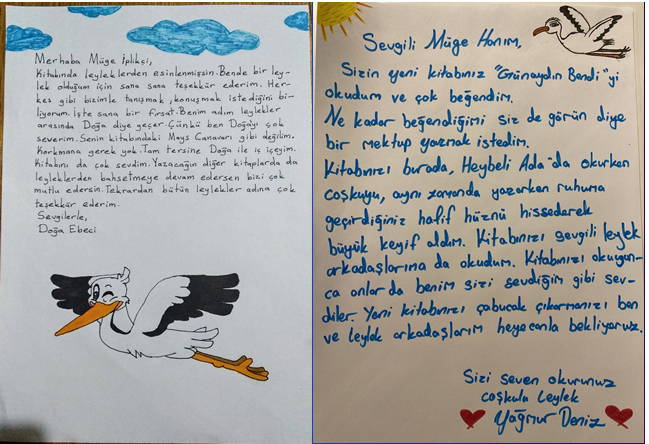 Merhaba Müge İplikçi,
Kitabında leyleklerden esinlenmişsin. Bende bir ley-
lek olduğum için sana sana teşekkür ederim. Her-
kes gibi bizimle tanışmak, konuşmak istediğini bi-
liyorum. İşte sana bir fırsat. Benim adım leylekler
arasında Doğa diye geçer. Çünkü ben Doğayı çok
severim. Senin kitabındaki Mays Canavarı gibi değilim.
Korkmana gerek yok. Tam tersine Doğa ile iç içeyim.
Kitabını da çok sevdim. Yazacağın diğer kitaplarda da
leyleklerden bahsetmeye devam edersen bizi çok
mutlu edersin. Tekrardan bütün leylekler adına çok
teşekkür ederim.
Sevgilerle,
Doğa Ebeci
Sevgili Müge Hanım,
Sizin yeni kitabınız "Günaydın Bendi"yi
okudum ve çok beğendim.
Ne kadar beğendiğimi siz de görün diye
bir mektup yazmak istedim.
Kitabınızı burada, Heybeli Ada'da okurken
coşkuyu, aynı zamanda yazarken ruhuma
geçirdiğiniz hafif hüznü hissederek
büyük keyif aldım. Kitabınızı sevgili leylek
arkadaşlarıma da okudum. Kitabınızı okuyun-
ca onlar da benim sizi sevdiğim gibi sev-
diler. Yeni kitabınızı çabucak çıkarmanızı ben
ve leylek arkadaşlarım heyecanla bekliyoruz.
Sizi seven okurunuz
coşkulu leylek
Yağmur Deniz